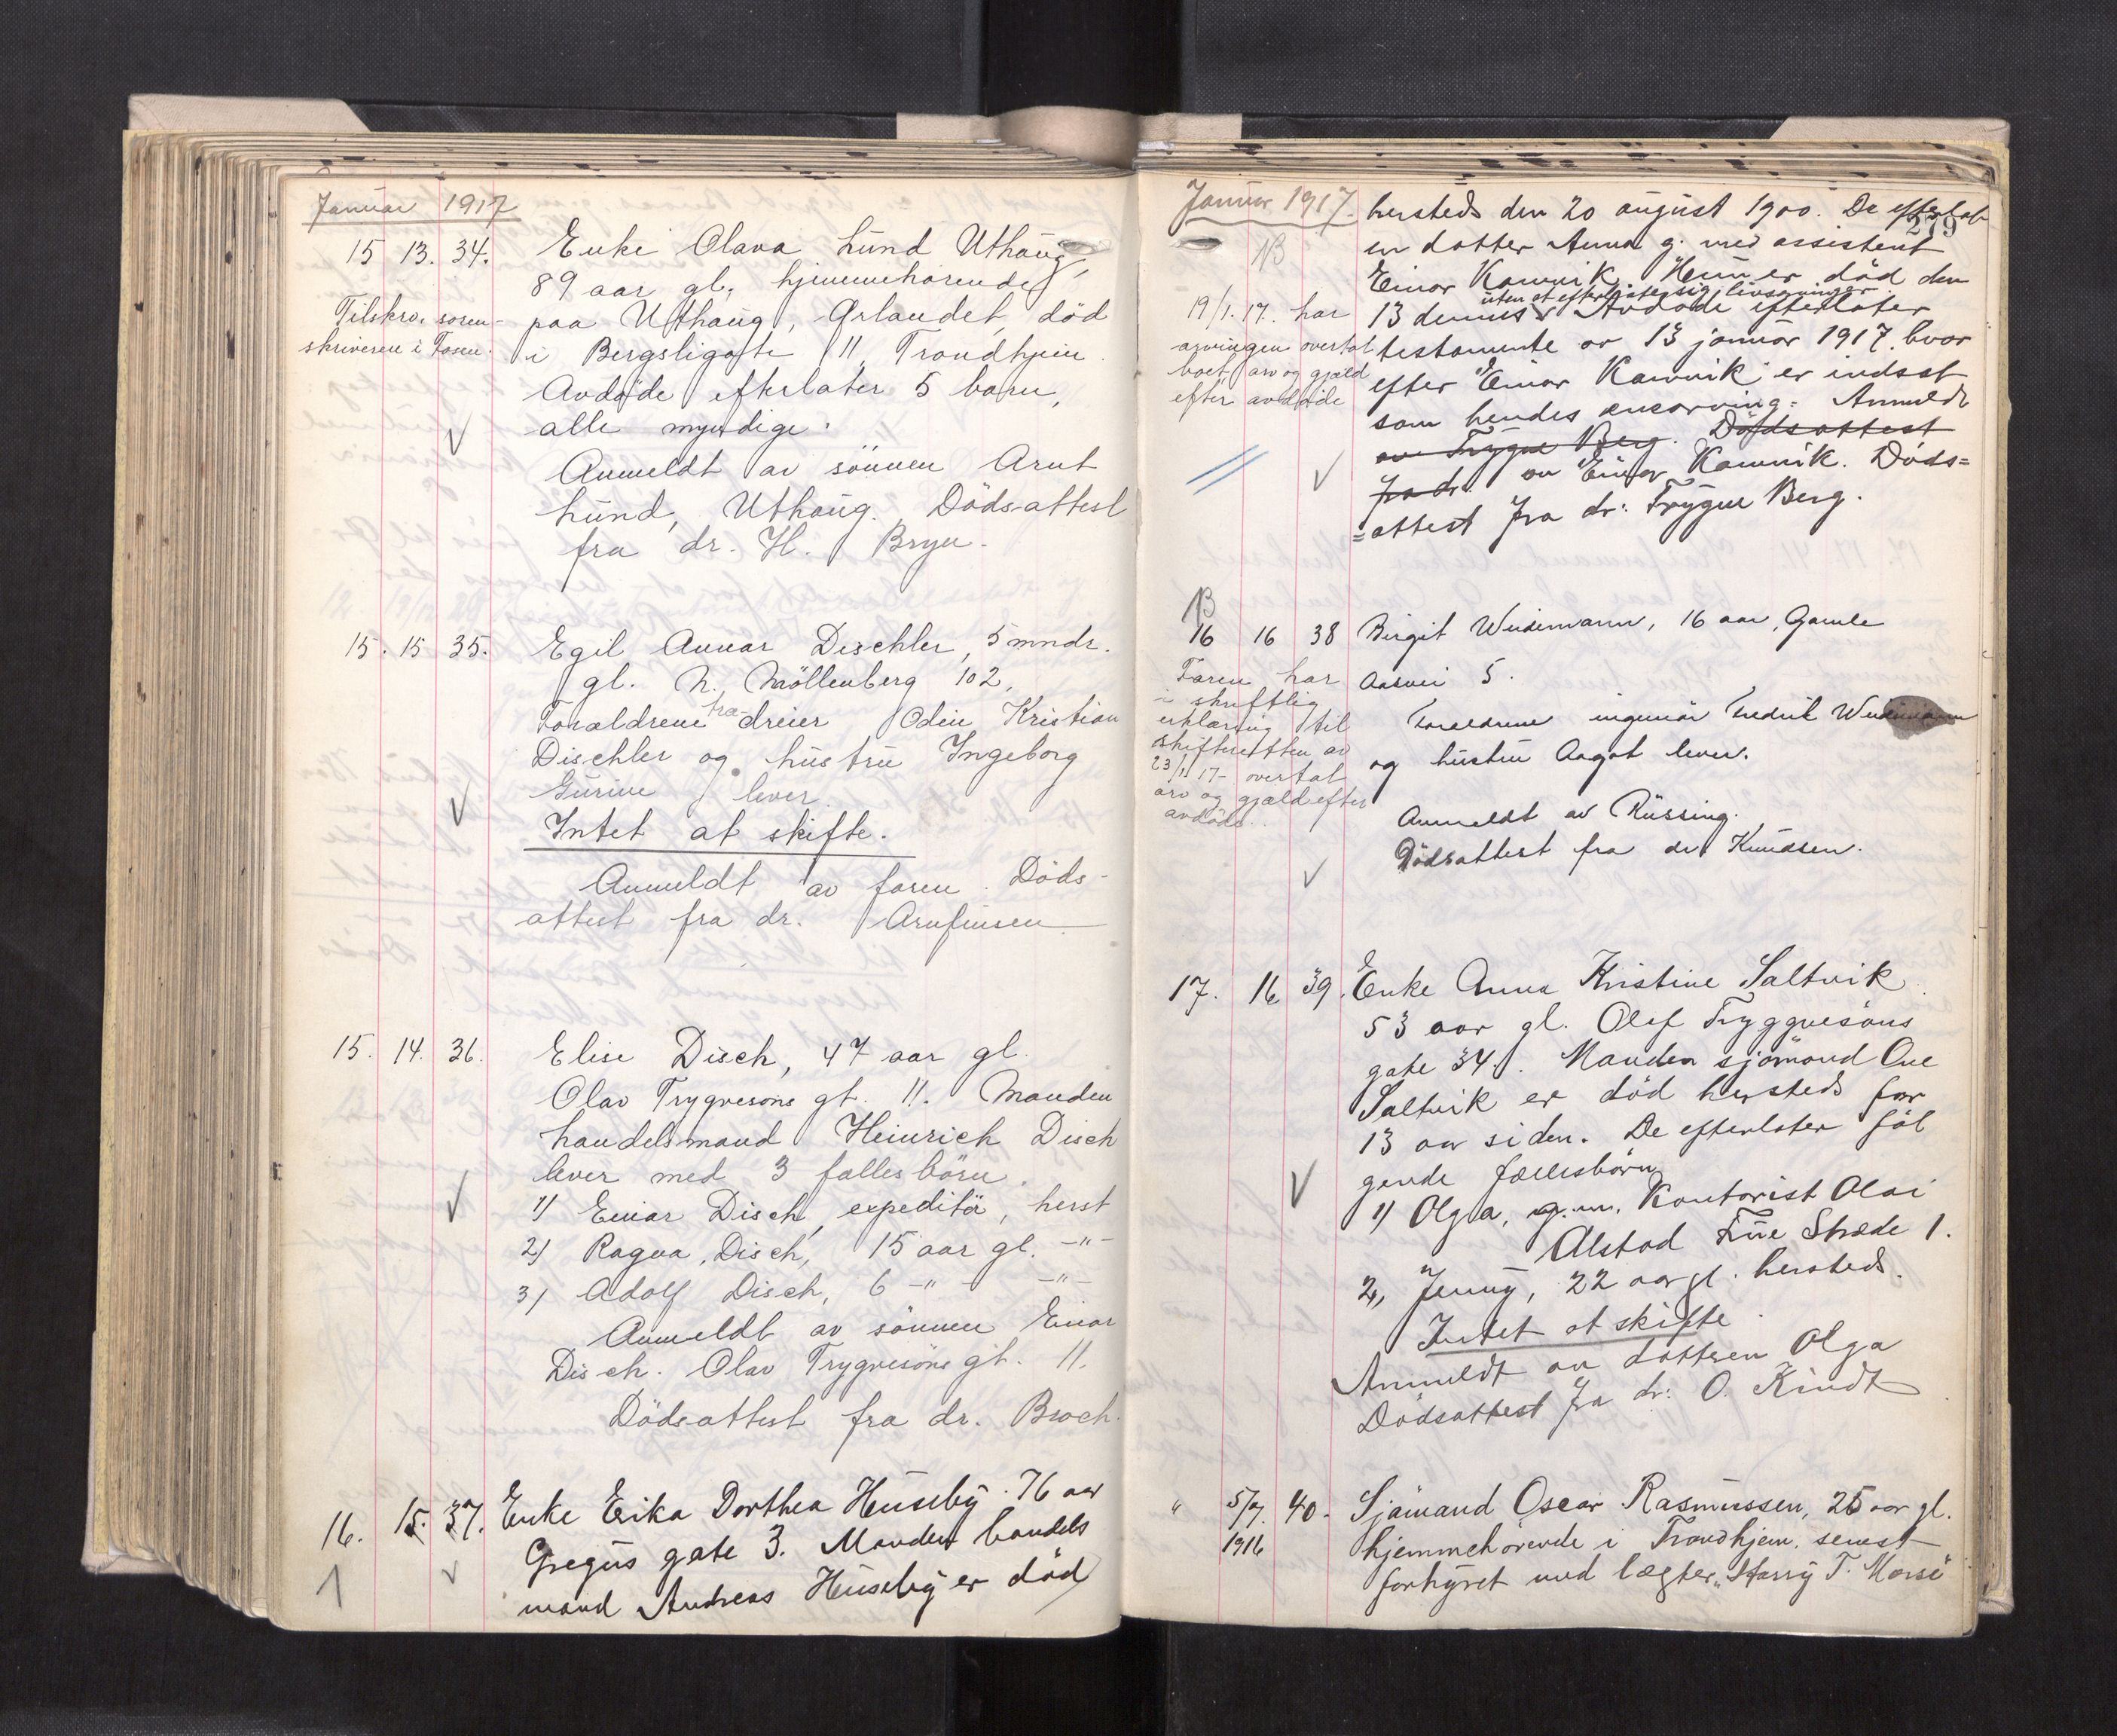 Januar 1917
15 13. 34. Enke Olava Lund Uthaug,
89 aar gl. hjemmehørende
Tilskr. soren- paa Uthaug, Ørlandet, død
skriveren i Fosen. i Bergsligate 11 Trondhjem.
Avdøde efterlater 5 barn,
alle myndige.
Anmeldt av sønnen Arnt
Lund, Uthaug. Dödsattest
fra dr. H. Bryn.
15. 15 35. Egil Annar Dischler, 5 mndr.
gl. N. Möllenberg 102,
Forældrene træ-dreier Odin Kristian
Dischler og hustru Ingeborg
Gurine lever.
Intet at skifte.
Anmeldt av faren. Döds-
attest fra dr. Arnfinsen
15. 14. 36. Elise Disch, 47 aar gl.
Olav Trygvesöns gt. 11. Manden
handelsmand Heinrich Disch
lever med 3 fællesbörn.
1) Einar Disch, expeditör, herst
2) Ragna Disch, 15 aar gl. -"-
3) Adolf Disch, 6 -"- -"-
Anmeldt av sönnen Einar
Disch. Olav Trygvesöns gt. 11.
Dödsattest fra dr. Broch.
16. 15. 37. Enke Erika Dorthea Huseby 76 aar
Gregus gate 3. Manden handels
mand Andreas Huseby er död
Januar 1917. hersteds den 20 august 1900. De efterlot
279
B en datter Anna g. med assistent
Einar Kamvik. Hun er död den
uten at efterlate sig livsarvinger
19/1.17. har 13 dennes. Avdöde efterlater
arvingen overtat testamente av 13 januar 1917. hvor
boet, arv og gjæld efter Einar Kamvik er indsat
efter avdöde som hendes enearving. Anmeldt
av Trygve Berg. Dödsattest
fra dr. av Einar Kamvik. Döds=
=attest fra dr. Trygve Berg.
B
16 16 38 Birgit Weidemann, 16 aar, Gamle
Faren har Aasvei 5.
i skriftlig
Foreldrene ingeniör Fredrik Weidemann
erklæring til
skifteretten av og hustru Aagot lever.
23/1 17 overtat
arv og gjæld efter
avdöde. Anmeldt av Rüssing.
Dödsattest fra dr Knudsen.
17. 16 39. Enke Anna Kristine Saltvik
53 aar gl. Olaf Tryggvesöns
gate 34. Manden sjömand Ove
Saltvik er död hersteds for
13 aar siden. De efterlater föl
gende fællesbörn
1) Olga, g.m. Kontorist Olai
Alstad Frue Stræde 1.
2, Jenny, 22 aar gl. hersteds.
Intet at skifte
Anmeldt av datteren Olga
Dödsattest fra dr: O. Kindt
" 5/7. 40. Sjömand Oscar Rasmussen, 25 aar gl.
1916 hjemmehörende i Trondhjem, senest
forhyret med lægter "Harry T. Morse"